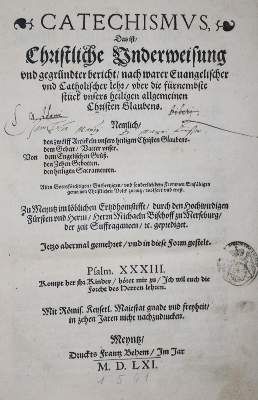 CATECHISMVS,
Das ist/
Christliche Vnderweisung
vnd gegründter bericht/ nach warer Euangelischer
vnd Catholischer lehr/ vber die fürnembste
stück vnsers heiligen allgemeinen
Christen Glaubens.
Nemlich/
den zwölff Artickeln vnsers heiligen Christen Glaubens.
dem Gebett/ Vatter vnser.
Von dem Engelischen Gruß.
den Zehen Gebotten.
den heiligen Sacramenten.
Allen Gottsförchtigen/ Guthertzigen/ vnd sonderlich den frommen Einfältigen
gemeinen Christlichen Volck
Zu Meyntz im löblichen Ertzthumstifft/ durch den Hochwürdigen
Fürsten vnd Herrn/ Herrn Michaeln Bischoff zu Merseburg/
der zeit Suffraganeen/ etc. geprediget.
Jetzo abermal gemehret/ vnd in diese Form gestelt.
Psalm. XXXIII.
Kompt her jhr Kinder/ höret mir zu/ Ich wil euch die
forcht des Herren lehren.
Mit Römis. Keyserl. Maiestat gnade vnd freyheit/
in zehen Jaren nicht nachzudrucken.
Meyntz/
Druckts Frantz Behem/ Im Jar
M. D. LXI.
1 5 6 1